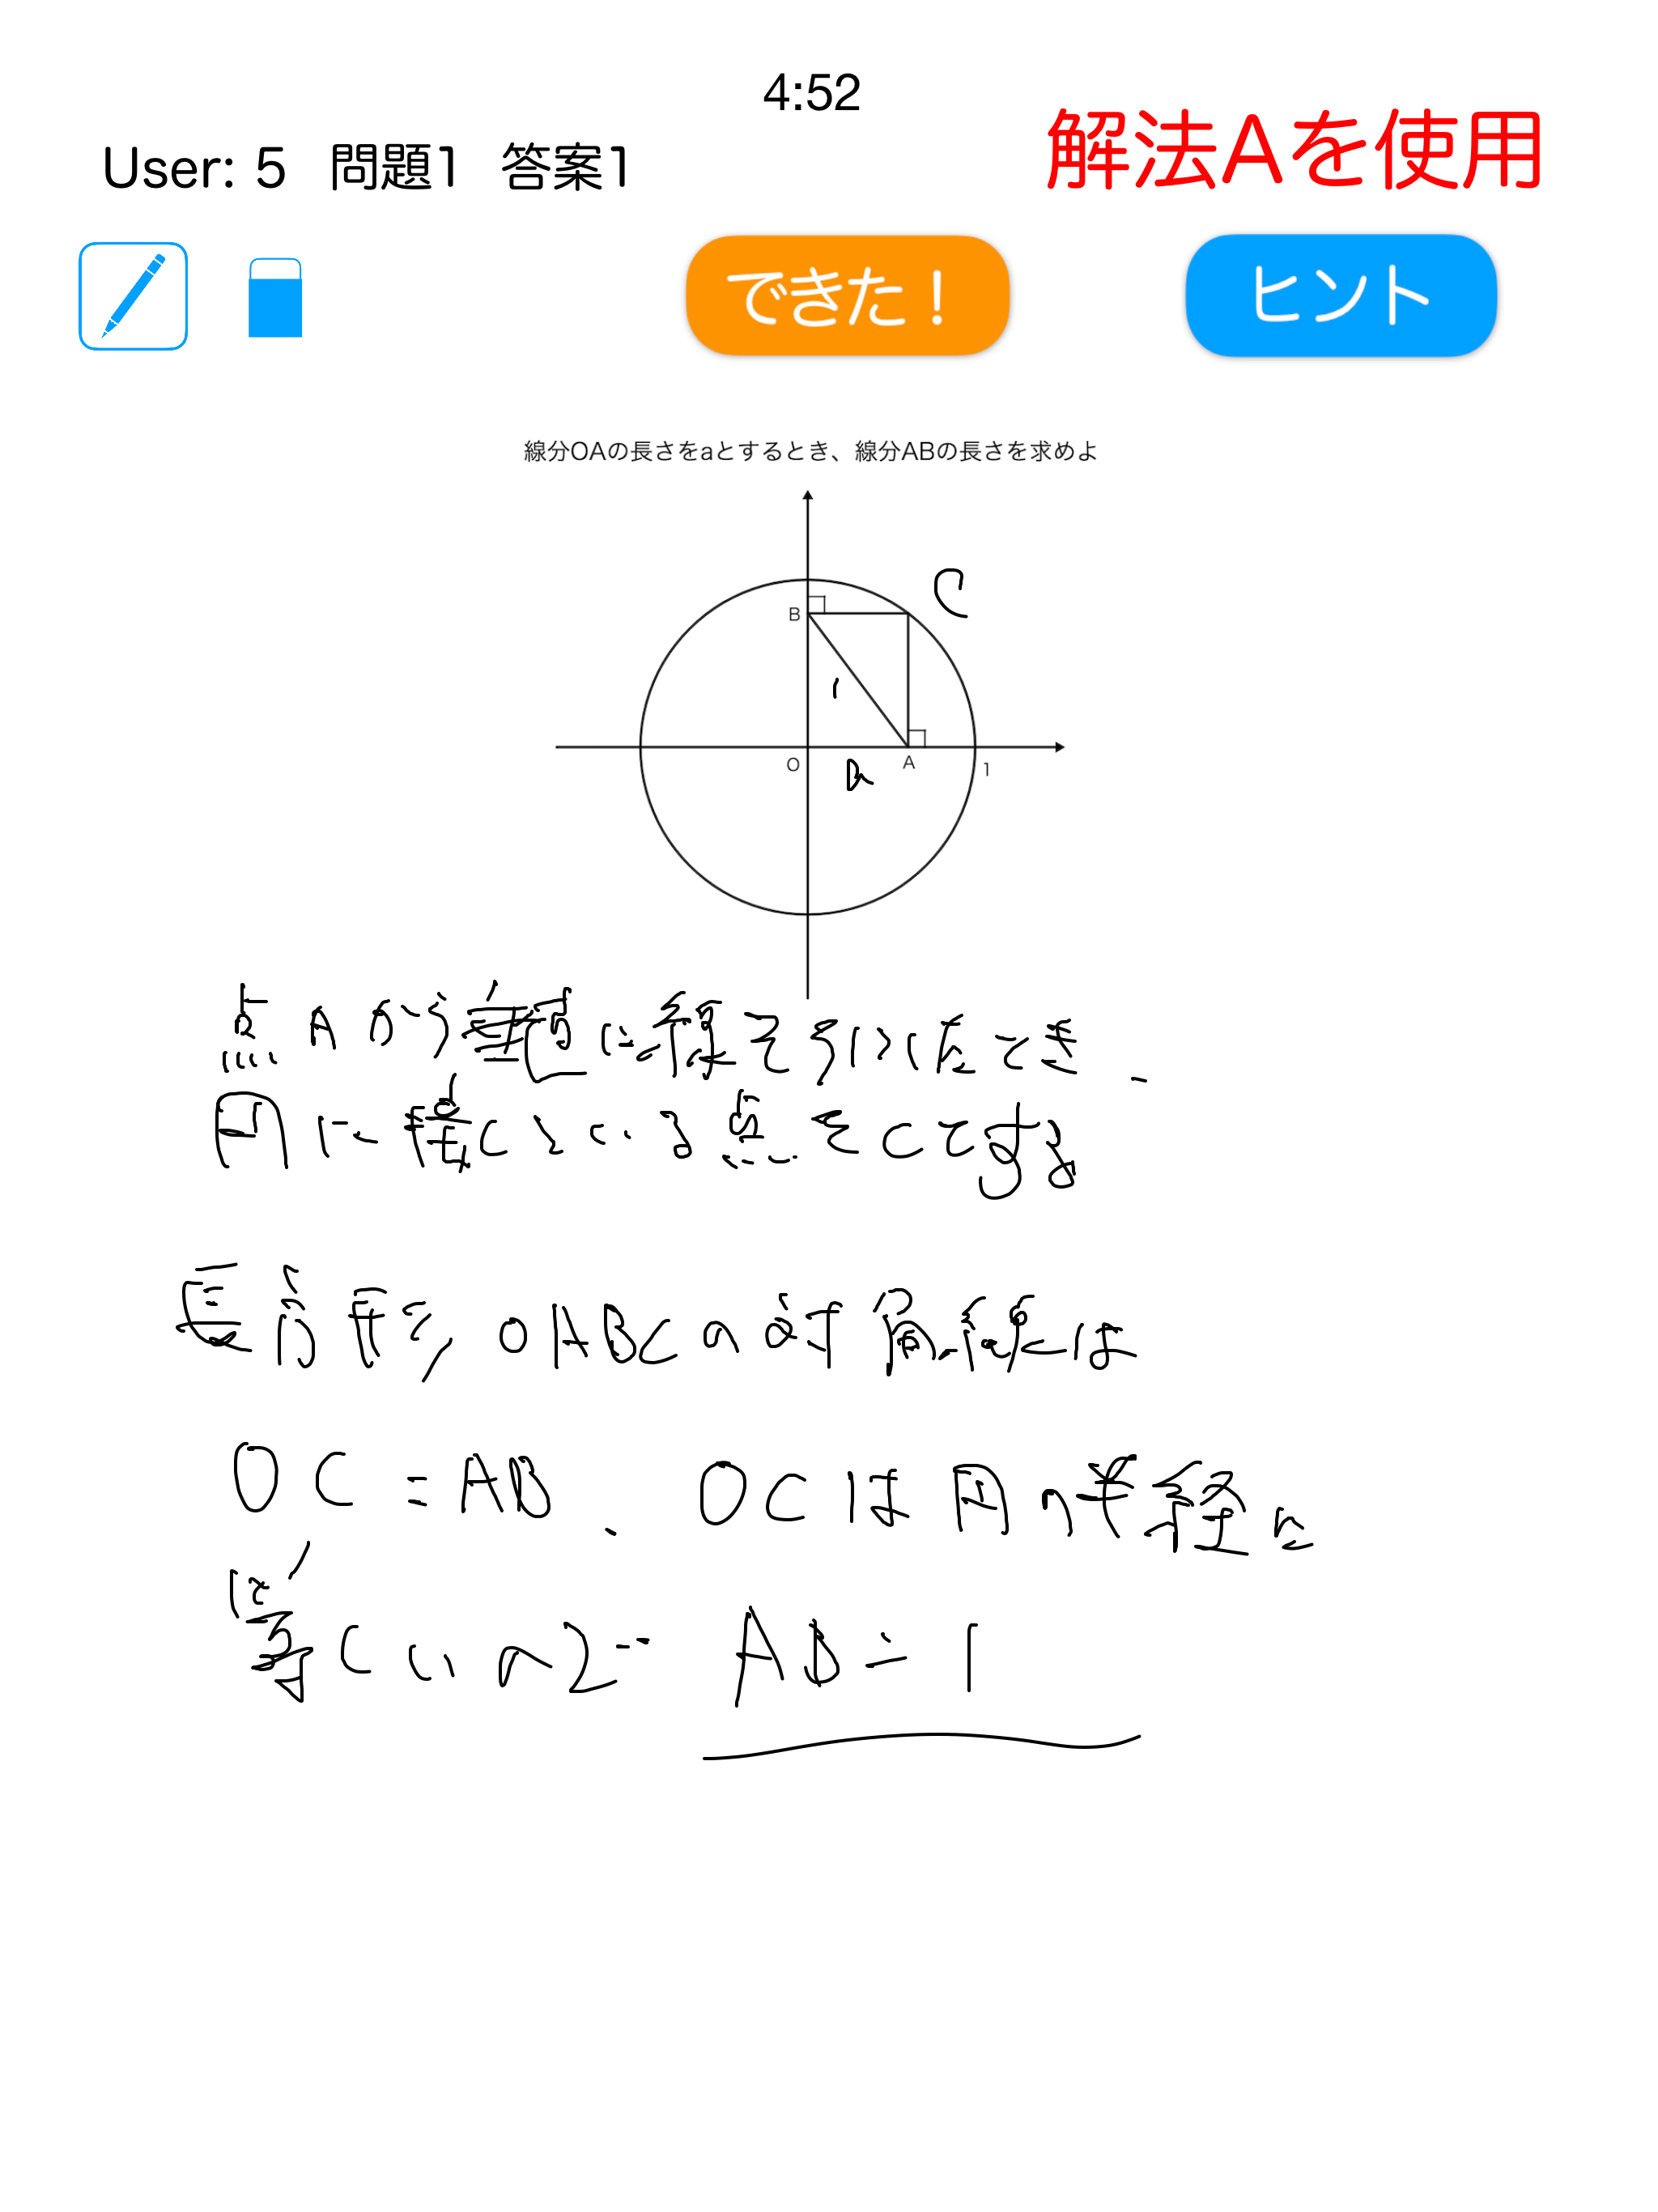 4:52
User: 5 問題1 答案1
解法Aを使用
できた！
ヒント
線分OAの長さをaとするとき、線分ABの長さを求めよ
C
B
1
O
a
A
1
点Aから垂直に線を引いたとき、
円に接している点をCとする
長方形OABCの対角線は
OC=AB、OCは円の半径に
1に
等しいので AB=1